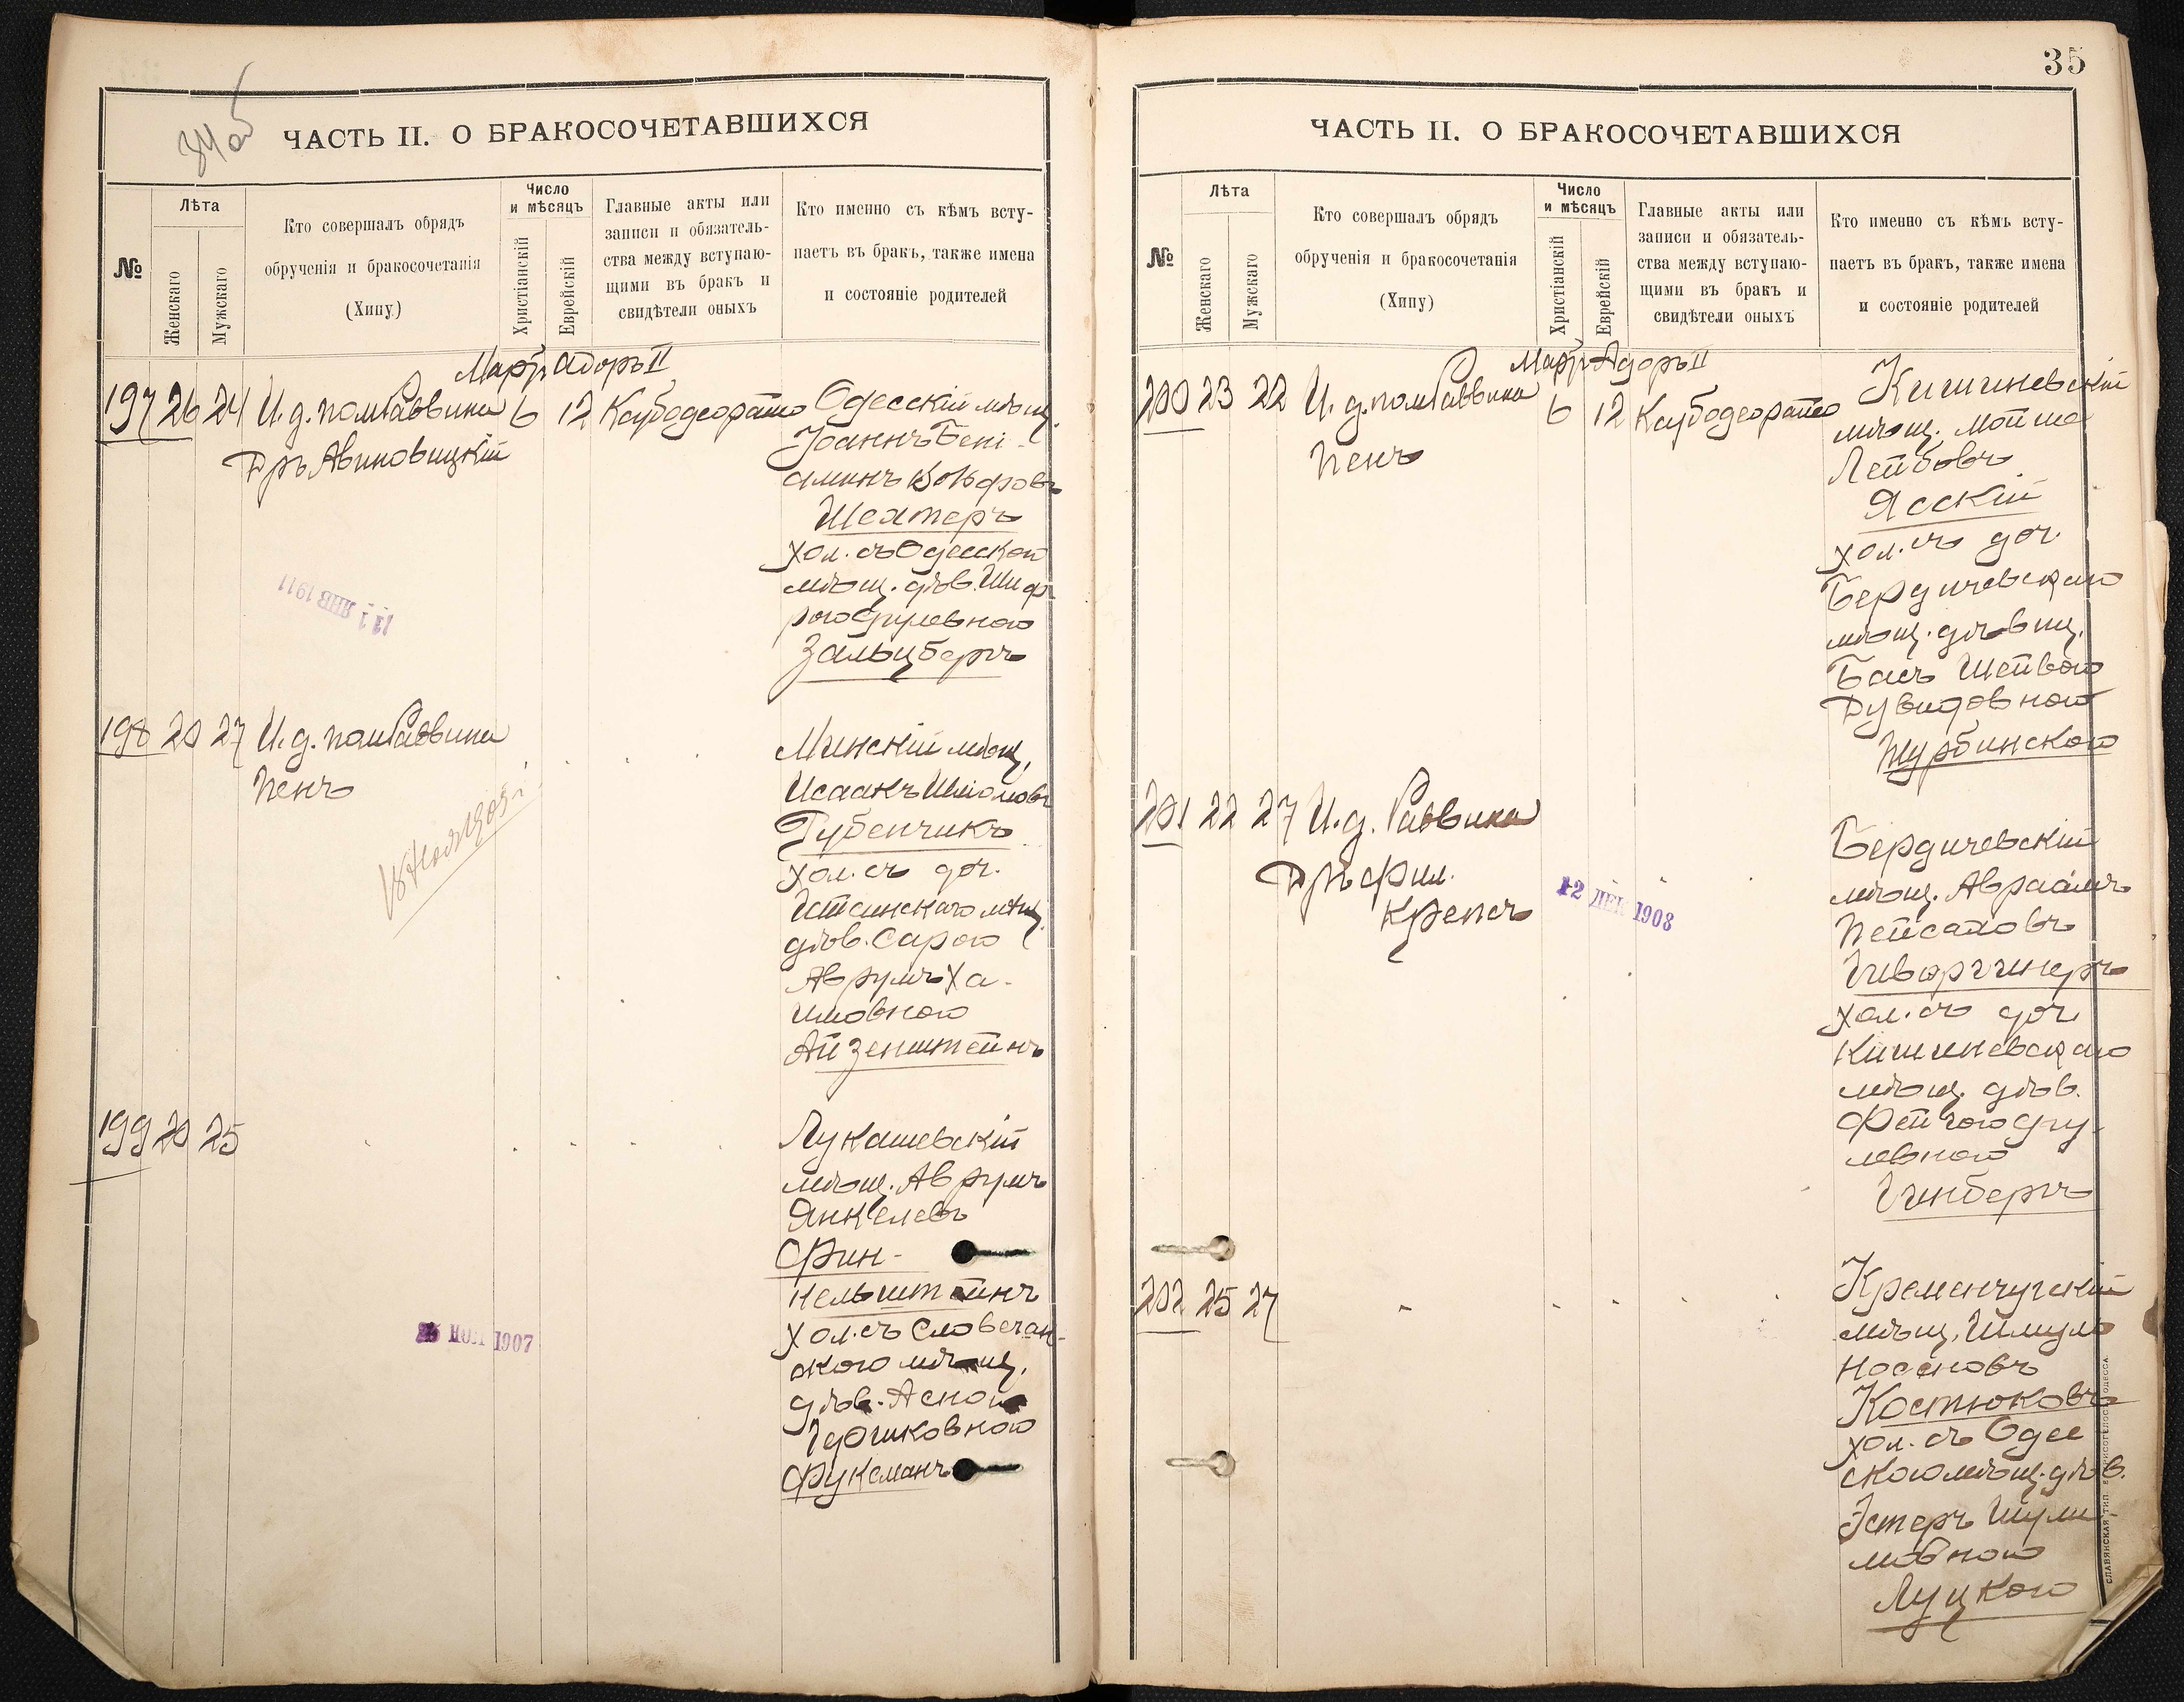 34 об
ЧАСТЬ II. О БРАКОСОЧЕТАВШИХСЯ
№
Лѣта
Женскаго
Мужскаго
Кто совершалъ обрядъ
обрученія и бракосочетанія
(Хипу)
Число
и мѣсяцъ
Христіанскій
Еврейскій
Главные акты или
записи и обязатель-
ства между вступаю-
щими въ бракъ и
свидѣтели оныхъ
Кто именно съ кѣмъ всту-
паетъ въ бракъ, также имена
и состояніе родителей
Мартъ Адоръ II
197 26 24 И.д. пом Раввина 6 12
Дръ Авиновицкій
Одесскій мѣщ.
Іоаннъ Бені-
аминъ Вольфовъ
Шехтеръ
хол. съ Одесской
мѣщ. дѣв. Шиф-
рою Срулевною
Зальцбергъ
11 ЯНВ 1911
198 20 27 И.д. пом Раввина
Пенъ
Минскій мѣщ.
Исаакъ Шліомовъ
Рубенчикъ
хол. съ доч.
мѣщ.
дѣв. Сарою
Аврумъ Ха-
имовною
Айзенштейнъ
199 20 25
Лукашевскій
мѣщ. Аврумъ
Янкелевъ
Фин-
кельштейнъ
хол. съ Словечан-
скою мѣщ.
дѣв. Асною
Ідошковною
Фуксманъ
1907
35
ЧАСТЬ II. О БРАКОСОЧЕТАВШИХСЯ
№
Лѣта
Женскаго
Мужскаго
Кто совершалъ обрядъ
обрученія и бракосочетанія
(Хипу)
Число
и мѣсяцъ
Христіанскій
Еврейскій
Главные акты или
записи и обязатель-
ства между вступаю-
щими въ бракъ и
свидѣтели оныхъ
Кто именно съ кѣмъ всту-
паетъ въ бракъ, также имена
и состояніе родителей
Мартъ Адоръ II
200 23 22 И.д. пом Раввина 6 12
Пенъ
Кишиневскій
мѣщ. Мойше
Лейбовъ
Ясскій
хол. съ доч.
Бердичевскаго
мѣщ. дѣвиц.
Бась Шейвою
Дувидовною
Шурбинскою
201 22 27 И.д. Раввина
Дръ Фил.
Крепсъ
12 ДЕК 1908
Бердичевскій
мѣщ. Авраамъ
Пейсаховъ
Гиворгинеръ
хол. съ доч.
Кишиневскаго
мѣщ. дѣв.
Фейгою Сру-
левною
Гинбергъ
202 25 27
Кременчугскій
мѣщ. Шмуль
Носоновъ
Костюковъ
хол. съ Одес
скою мѣщ. дѣв.
Эстеръ Шули-
мовною
Луцкою